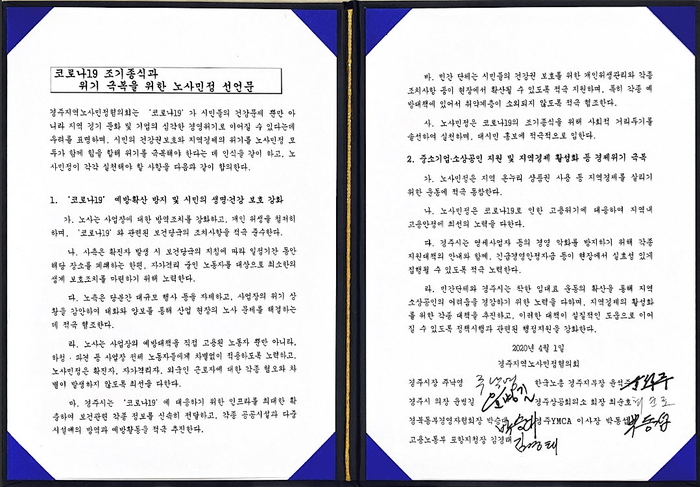 코로나19 조기종식과
위기 극복을 위한 노사민정 선언문
경주지역노사민정협의회는 '코로나19'가 시민들의 건강문제 뿐만 아
니라 지역 경기 둔화 및 기업의 심각한 경영위기로 이어질 수 있다는데
우려를 표명하며, 시민의 건강권보호와 지역경제의 위기를 노사민정 모
두가 함께 힘을 합해 위기를 극복해야 한다는 데 인식을 같이 하고, 노
사민정이 각각 실천해야 할 사항을 다음과 같이 합의한다.
1. '코로나19' 예방확산 방지 및 시민의 생명·건강 보호 강화
가. 노사는 사업장에 대한 방역조치를 강화하고, 개인 위생을 철저히
하며, '코로나19'와 관련된 보건당국의 조치사항을 적극 준수한다.
나. 사측은 확진자 발생 시 보건당국의 지침에 따라 일정기간 동안
해당 장소를 폐쇄하는 한편, 자가격리 중인 노동자를 대상으로 최소한의
생계 보호조치를 마련하기 위해 노력한다.
다. 노측은 당분간 대규모 행사 등을 자제하고, 사업장의 위기 상
황을 감안하여 대화와 양보를 통해 산업 현장의 노사 문제를 해결하는
데 적극 협조한다.
라. 노사는 사업장의 예방대책을 직접 고용된 노동자 뿐만 아니라,
하청·파견 등 사업장 전체 노동자들에게 차별없이 적용하도록 노력하고,
노사민정은 확진자, 자가격리자, 외국인 근로자에 대한 각종 혐오와 차
별이 발생하지 않도록 최선을 다한다.
마. 경주시는 '코로나19'에 대응하기 위한 인프라를 최대한 확
충하여 보건관련 각종 정보를 신속히 전달하고, 각종 공공시설과 다중
시설에의 방역과 예방활동을 적극 추진한다.
바. 민간 단체는 시민들의 건강권 보호를 위한 개인위생관리와 각종
조치사항 등이 현장에서 확산될 수 있도록 적극 지원하며, 특히 각종 예
방대책에 있어서 취약계층이 소외되지 않도록 적극 협조한다.
사. 노사민정은 코로나19의 조기종식을 위해 사회적 거리두기를
솔선하여 실천하며, 대시민 홍보에 적극적으로 임한다.
2. 중소기업·소상공인 지원 및 지역경제 활성화 등 경제위기 극복
가. 노사민정은 지역 온누리 상품권 사용 등 지역경제를 살리기
위한 운동에 적극 동참한다.
나. 노사민정은 코로나19로 인한 고용위기에 대응하여 지역내
고용안정에 최선의 노력을 다한다.
다. 경주시는 영세사업자 등의 경영 악화를 방지하기 위해 각종
지원대책의 안내와 함께, 긴급경영안정자금 등이 현장에서 실효성 있게
집행될 수 있도록 적극 노력한다.
라. 민간단체와 경주시는 착한 임대료 운동의 확산을 통해 지역
소상공인의 어려움을 경감하기 위한 노력을 다하며, 지역경제의 활성화
를 위한 각종 대책을 추진하고, 이러한 대책이 실질적인 도움으로 이어
질 수 있도록 정책시행과 관련된 행정지원을 강화한다.
2020년 4월 1일
경주지역노사민정협의회
경주시장 주낙영 주낙영 한국노총 경주지부장
경주시 의장 윤병길 윤병길 경주상공회의소 회장 최순호 최순호
경북동부경영자협회장 경주YMCA 이사장 박동섭
고용노동부 포항지청장 김경태 김경태